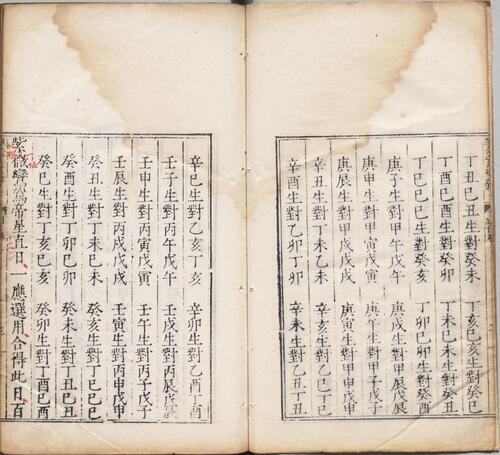 丁丑己丑生對癸未　丁亥己亥生對癸巳
丁酉己酉生對癸卯　丁未己未生對癸丑
丁巳己巳生對癸亥　丁卯己卯生對癸酉
庚子生對甲午戊午　庚戌生對甲辰戊辰
庚申生對甲寅戊寅　庚午生對甲子戊子
庚辰生對甲戌戊戌　庚寅生對甲申戊申
辛丑生對乙未丁未　辛亥生對乙巳丁巳
辛酉生對乙卯丁卯　辛未生對乙丑丁丑
辛巳生對乙亥丁亥　辛卯生對乙酉丁酉
壬子生對丙午戊午　壬戌生對丙辰戊辰
壬申生對丙寅戊寅　壬午生對丙子戊子
壬辰生對丙戌戊戌　壬寅生對丙申戊申
癸丑生對丁未己未　癸亥生對丁巳己巳
癸酉生對丁卯己卯　癸未生對丁丑己丑
癸巳生對丁亥己亥　癸卯生對丁酉己酉
紫微鑾駕帝星直日一應選用合得此日百